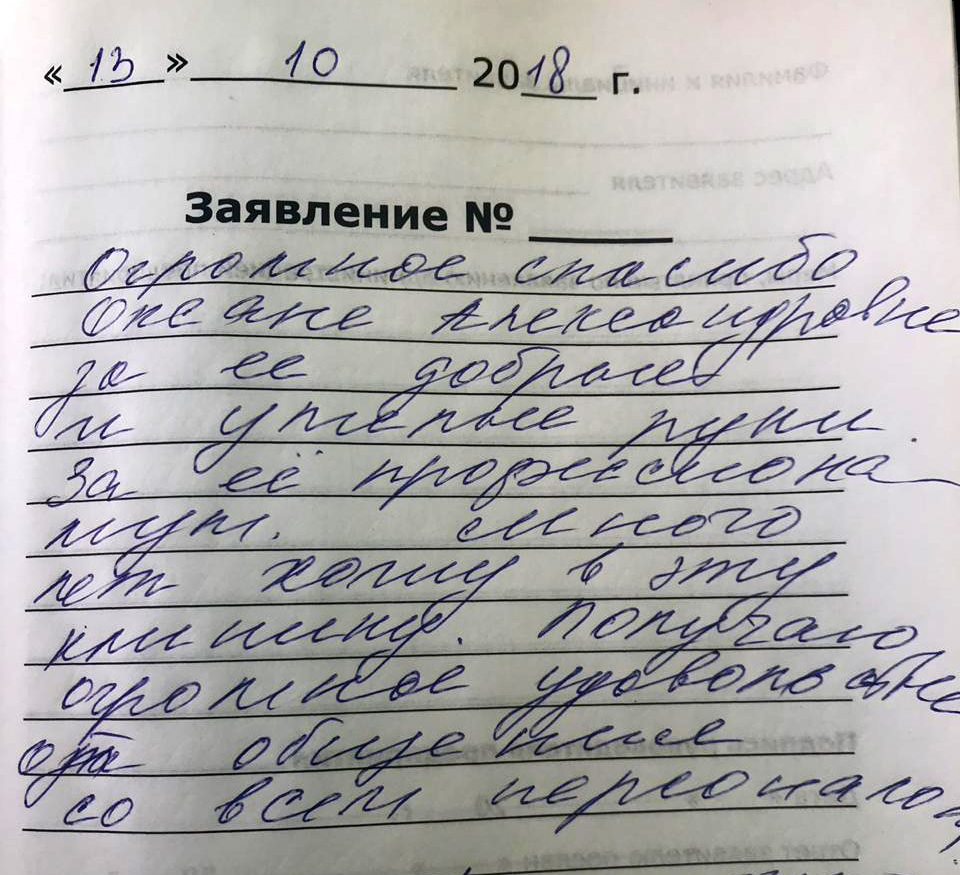 «13» 10 2018 г.
Заявление № ______
Огромное спасибо
Оксане Александровне
за ее доброту
и умелые руки.
За её профессиона
лизм. Много
лет хожу в эту
клинику. Получаю
огромное удовольствие
от общение
со всем персоналом